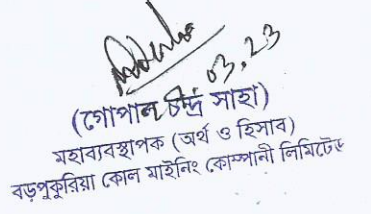 03.23
(গোপাল চন্দ্র সাহা)
মহাব্যবস্থাপক (অর্থ ও হিসাব)
বড়পুকুরিয়া কোল মাইনিং কোম্পানী লিমিটেড